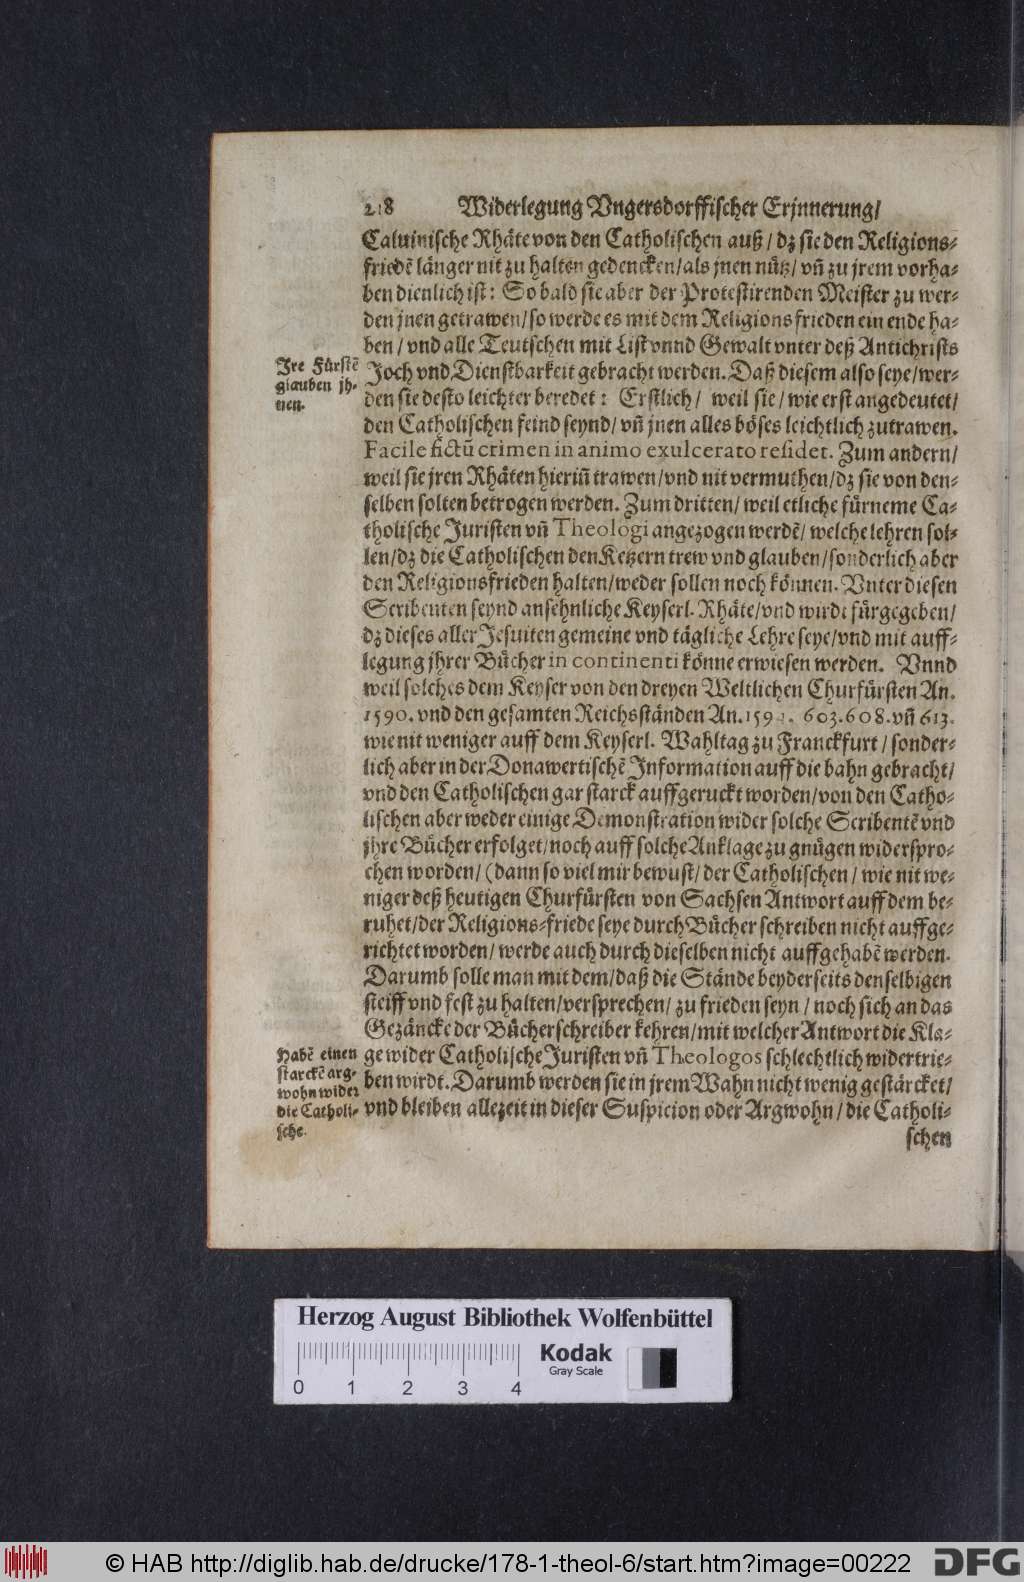 218 Widerlegung Vngersdorffischer Erjnnerung/
Caluinische Rhäte von den Catholischen auß / dz sie den Religions-
friedẽ länger nit zu halten gedencken/als jnen nütz/ vñ zu jrem vorha-
ben dienlich ist: So bald sie aber der Protestirenden Meister zu wer-
den jnen getrawen/so werde es mit dem Religionsfrieden ein ende ha-
ben / vnd alle Teutschen mit List vnnd Gewalt vnter deß Antichrists
Jre Fürstẽ
glauben jh-
nen.
Joch vnd Dienstbarkeit gebracht werden. Daß diesem also seye/wer-
den sie desto leichter beredet: Erstlich/ weil sie / wie erst angedeutet/
den Catholischen feind seynd/ vñ jnen alles böses leichtlich zutrawen.
Facile fictũ crimen in animo exulcerato residet. Zum andern/
weil sie jren Rhäten hieriñ trawen/vnd nit vermuthen/dz sie von den-
selben solten betrogen werden. Zum dritten/ weil etliche fürneme Ca-
tholische Juristen vñ Theologi angezogen werdẽ/ welche lehren sol-
len/dz die Catholischen den Ketzern trew vnd glauben/sonderlich aber
den Religionsfrieden halten/weder sollen noch können. Vnter diesen
Scribenten seynd ansehnliche Keyserl. Rhäte/vnd wirdt fürgegeben/
dz dieses aller Jesuiten gemeine vnd tägliche Lehre seye/vnd mit auff-
legung jhrer Bücher in continenti könne erwiesen werden. Vnnd
weil solches dem Keyser von den dreyen Weltlichen Churfürsten An.
1590. vnd den gesamten Reichsständen An. 603. 608. vñ 613.
wie nit weniger auff dem Keyserl. Wahltag zu Franckfurt / sonder-
lich aber in der Donawertischẽ Information auff die bahn gebracht/
vnd den Catholischen gar starck auffgeruckt worden/von den Catho-
lischen aber weder einige Demonstration wider solche Scribentẽ vnd
jhre Bücher erfolget/noch auff solche Anklage zu gnügen widerspro-
chen worden/ (dann so viel mir bewust/ der Catholischen / wie nit we-
niger deß heutigen Churfürsten von Sachsen Antwort auff dem be-
ruhet/der Religions-friede seye durch Bücher schreiben nicht auffge-
richtet worden/ werde auch durch dieselben nicht auffgehabẽ werden.
Darumb solle man mit dem/daß die Stände beyderseits denselbigen
steiff vnd fest zu halten/versprechen/ zu frieden seyn / noch sich an das
Gezäncke der Bücherschreiber kehren/mit welcher Antwort die Kla-
Habẽ einen
starckẽ arg-
wohn wider
die Catholi-
sche.
ge wider Catholische Juristen vñ Theologos schlechtlich widertrie-
ben wirdt. Darumb werden sie in jrem Wahn nicht wenig gestärcket/
vnd bleiben allezeit in dieser Suspicion oder Argwohn / die Catholi-
schen
Herzog August Bibliothek Wolfenbüttel
Kodak
Gray Scale
0 1 2 3 4
© HAB http://diglib.hab.de/drucke/178-1-theol-6/start.htm?image=00222
DFG